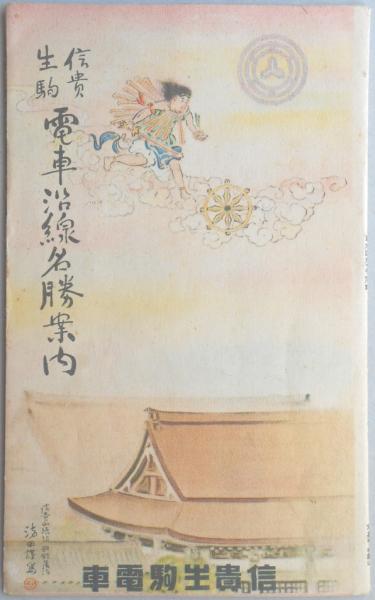 信貴
生駒
電車沿線名勝案内
車電駒生貴信